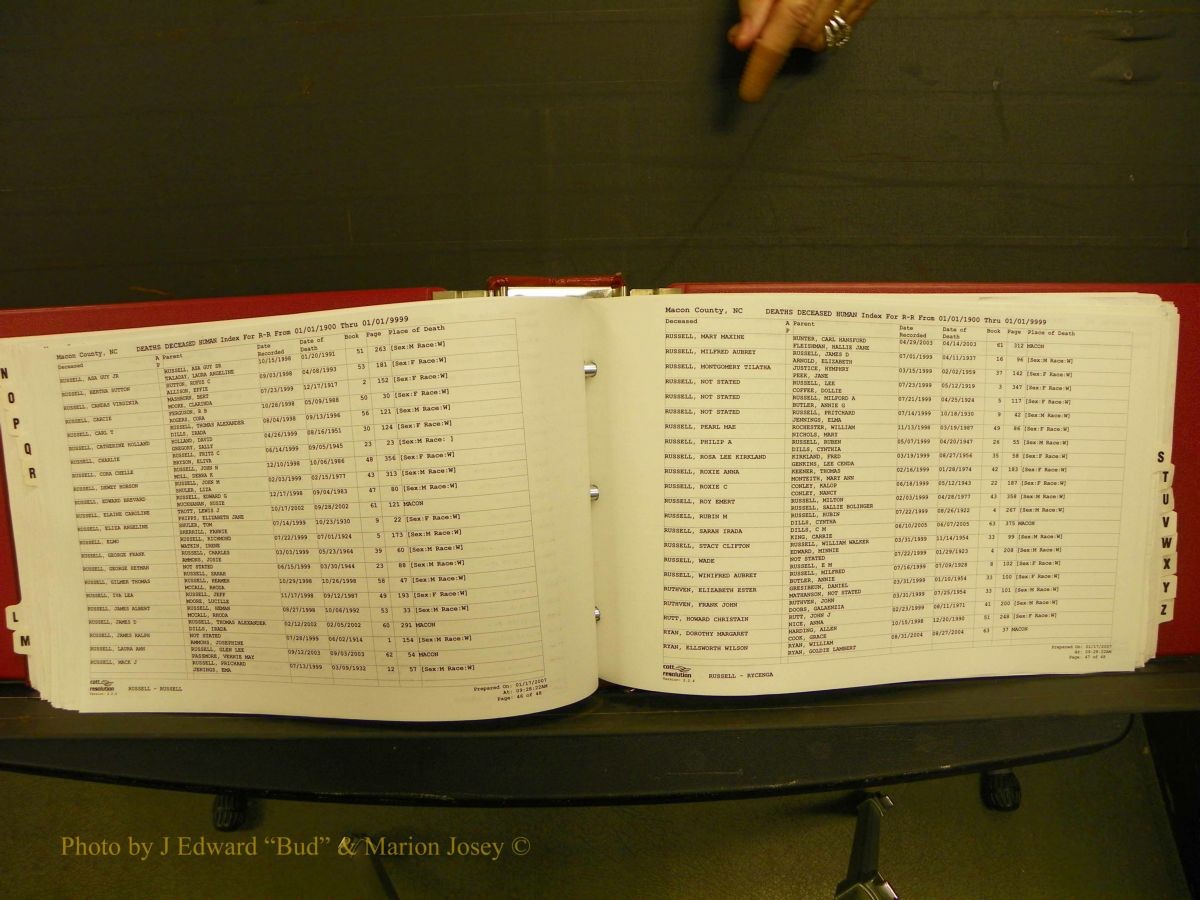 Macon County, NC DEATHS DECEASED HUMAN Index For R-R From 01/01/1900 Thru 01/01/9999
Deceased A P Parent Date Recorded Date of Death Book Page Place of Death
RUSSELL, ASA GUY JR RUSSELL, ASA GUY SR 10/15/1998 01/20/1991 51 263 [Sex:M Race:W]
TALADAY, LAURA ANGELINE
RUSSELL, BERTHA SUTTON 09/03/1998 04/08/1993 53 181 [Sex:F Race:W]
ALLISON, EFFIE
RUSSELL, CANDAS VIRGINIA MASHBURN, BERT 07/23/1999 12/17/1917 2 152 [Sex:F Race:W]
MOORE, CLARINDA
RUSSELL, CARCIE 10/28/1998 05/09/1988 50 30 [Sex:F Race:W]
ROGERS, CORA
RUSSELL, CARL T RUSSELL, THOMAS ALEXANDER 08/04/1998 09/13/1996 56 121 [Sex:M Race:W]
DILLS, IRADA
RUSSELL, CATHERINE HOLLAND HOLLAND, DAVID 04/26/1999 08/16/1951 30 124 [Sex:F Race:W]
GREGORY, SALLY
RUSSELL, CHARLIE 06/14/1999 09/05/1945 23 23 [Sex:M Race: ]
RUSSELL, CORA CHELLE RUSSELL, JOHN N 12/10/1998 10/06/1986 48 356 [Sex:F Race:W]
RUSSELL, DEWEY HOBSON RUSSELL, JOHN M 02/03/1999 02/15/1977 43 313 [Sex:M Race:W]
SHULER, LIZA
RUSSELL, EDWARD BREVARD RUSSELL, EDWARD G 12/17/1998 09/04/1983 47 80 [Sex:M Race:W]
BUCHHANAN, SUSIE
RUSSELL, ELAINE CAROLINE TROTT, LEWIS J 10/17/2002 09/28/2002 61 121 MACON
PHIPPS, ELIZABETH JANE
RUSSELL, ELIZA ANGELINE SHULER, TOM 07/14/1999 10/23/1930 9 22 [Sex:F Race:W]
SHERRILL, FANNIE
RUSSELL, ELMO RUSSELL, RICHMOND 07/22/1999 07/01/1924 5 173 [Sex:M Race:W]
WATKIN, IRENE
RUSSELL, GEORGE FRANK RUSSELL, CHARLES 03/03/1999 05/23/1964 39 60 [Sex:M Race:W]
AMMONS, JOSIE
RUSSELL, GEORGE SETMAN NOT STATED 06/15/1999 03/30/1944 23 88 [Sex:M Race:W]
RUSSELL, SARAH
RUSSELL, GILMER THOMAS 10/29/1998 10/26/1998 58 47 [Sex:M Race:W]
MCCALL, RHODA
RUSSELL, IVA LEA RUSSELL, JEFF 11/17/1998 09/12/1987 49 193 [Sex:F Race:W]
MOORE, LUCILLE
RUSSELL, JAMES ALBERT RUSSELL, HEMAN 08/27/1998 10/06/1992 53 33 [Sex:M Race:W]
MCCALL, RHODA
RUSSELL, JAMES D RUSSELL, THOMAS ALEXANDER 02/12/2002 02/05/2002 60 291 MACON
DILLS, IRADA
RUSSELL, JAMES RALPH NOT STATED 07/28/1999 06/02/1914 1 154 [Sex:M Race:W]
AMMONS, JOSEPHINE
RUSSELL, LAURA ANN RUSSELL, GLEN LEE 09/12/2003 09/03/2003 62 54 MACON
PASSMORE, VERNIE MAY
RUSSELL, MACK J RUSSELL, PRICHARD 07/13/1999 03/09/1932 12 57 [Sex:M Race:W]
JENINGS, EMA
cott resolution
RUSSELL - RUSSELL
Prepared On: 01/17/2007
At: 09:28:22AM
Page: 46 of 48
Macon County, NC DEATHS DECEASED HUMAN Index For R-R From 01/01/1900 Thru 01/01/9999
Deceased A P Parent Date Recorded Date of Death Book Page Place of Death
RUSSELL, MARY MAXINE HUNTER, CARL HANSFORD 04/29/2003 04/14/2003 61 312 MACON
FLEISHMAN, HALLIE JANE
RUSSELL, MILFRED AUBREY RUSSELL, JAMES D 07/01/1999 04/11/1937 16 96 [Sex:M Race:W]
ARNOLD, ELIZABETH
RUSSELL, MONTGOMERY TILATHA JUSTICE, HUMPHRY 03/15/1999 02/02/1959 37 142 [Sex:F Race:W]
PEEK, JANE
RUSSELL, NOT STATED RUSSELL, LEE 07/23/1999 05/12/1919 3 347 [Sex:F Race:W]
COFFEE, DOLLIE
RUSSELL, NOT STATED RUSSELL, MILFORD A 07/21/1999 04/25/1924 5 117 [Sex:F Race:W]
BUTLER, ANNIE G
RUSSELL, NOT STATED RUSSELL, PRITCHARD 07/14/1999 10/18/1930 9 42 [Sex:M Race:W]
JENNINGS, ELMA
RUSSELL, PEARL MAE ROCHESTER, WILLIAM 11/13/1998 03/19/1987 49 86 [Sex:F Race:W]
NICHOLS, MARY
RUSSELL, PHILIP A RUSSELL, RUBEN 05/07/1999 04/20/1947 26 55 [Sex:M Race:W]
DILLS, CYNTHIA
RUSSELL, ROSA LEE KIRKLAND KIRKLAND, FRED 03/19/1999 08/27/1956 35 58 [Sex:F Race:W]
GENKINS, LEE CENDA
RUSSELL, ROXIE ANNA KEENER, THOMAS 02/16/1999 01/28/1974 42 183 [Sex:F Race:W]
MONTEITH, MARY ANN
RUSSELL, ROXIE C CONLEY, KALOP 06/18/1999 05/12/1943 22 187 [Sex:F Race:W]
CONLEY, NANCY
RUSSELL, ROY EMERT RUSSELL, MILTON 02/03/1999 04/28/1977 43 358 [Sex:M Race:W]
RUSSELL, SALLIE BOLINGER
RUSSELL, RUBIN M RUSSELL, RUBIN 07/22/1999 08/26/1922 4 267 [Sex:M Race:W]
DILLS, CYNTHA
RUSSELL, SARAH IRADA DILLS, C M 06/10/2005 06/07/2005 63 375 MACON
KING, CARRIE
RUSSELL, STACY CLIFTON RUSSELL, WILLIAM WALKER 03/31/1999 11/14/1954 33 99 [Sex:M Race:W]
EDWARD, MINNIE
RUSSELL, WADE NOT STATED 07/22/1999 01/29/1923 4 208 [Sex:M Race:W]
RUSSELL, E M
RUSSELL, WINIFRED AUBREY RUSSELL, MILFRED 07/16/1999 07/09/1928 8 102 [Sex:F Race:W]
BUTLER, ANNIE
RUTHVEN, ELIZABETH ESTER 03/31/1999 01/10/1954 33 100 [Sex:F Race:W]
MATHANSON, NOT STATED
RUTHVEN, FRANK JOHN RUTHVEN, JOHN 03/31/1999 07/25/1954 33 101 [Sex:M Race:W]
DOORS, GALAENZIA
RUTT, HOWARD CHRISTAIN RUTT, JOHN J 02/23/1999 08/11/1971 41 200 [Sex:M Race:W]
NICE, ANNA
RYAN, DOROTHY MARGARET HARDING, ALLEN 10/15/1998 12/20/1990 51 248 [Sex:F Race:W]
COOK, GRACE
RYAN, ELLSWORTH WILSON RYAN, WILLIAM 08/31/2004 08/27/2004 63 37 MACON
RYAN, GOLDIE LAMBERT
cott resolution
RUSSELL - RYCENGA
Prepared On: 01/17/2007
At: 09:28:22AM
Page: 47 of 48
N
O
P
Q
R
L
M
S
T
U
V
W
X
Y
Z
Photo by J Edward “Bud” & Marion Josey ©